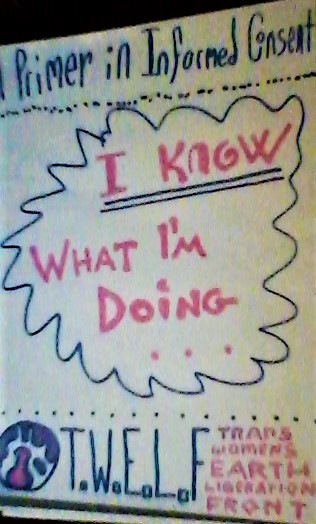 A Primer in Informed Consent
I KNOW
WHAT I'M
DOING
...
T.W.E.L.F
TRANS
WOMENS
EARTH
LIBERATION
FRONT